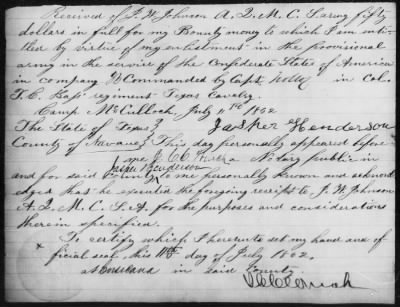 Received of J. W. Johnson A. Q. M. C. S. army fifty
dollars in full for my Bounty money to which I am enti-
tled by virtue of my enlistment in the provisional
army in the service of the Confederate States of America
in company Commanded by Capt. in Col.
T. C. regiment Texas cavalry.
Camp McCulloch, July 11th 1862
The State of Texas } Jasper Henderson
County of Navarro } This day personally appeared before
me J. C. C. a Notary public in
and for said County Jasper Henderson to me personally known and acknowl
edged that he executed the foregoing receipt to J. W. Johnson
A. Q. M. C. S. A. for the purposes and considerations
therein specified.
To certify which I hereunto set my hand and of
ficial seal, this 11th day of July 1862.
at in said County